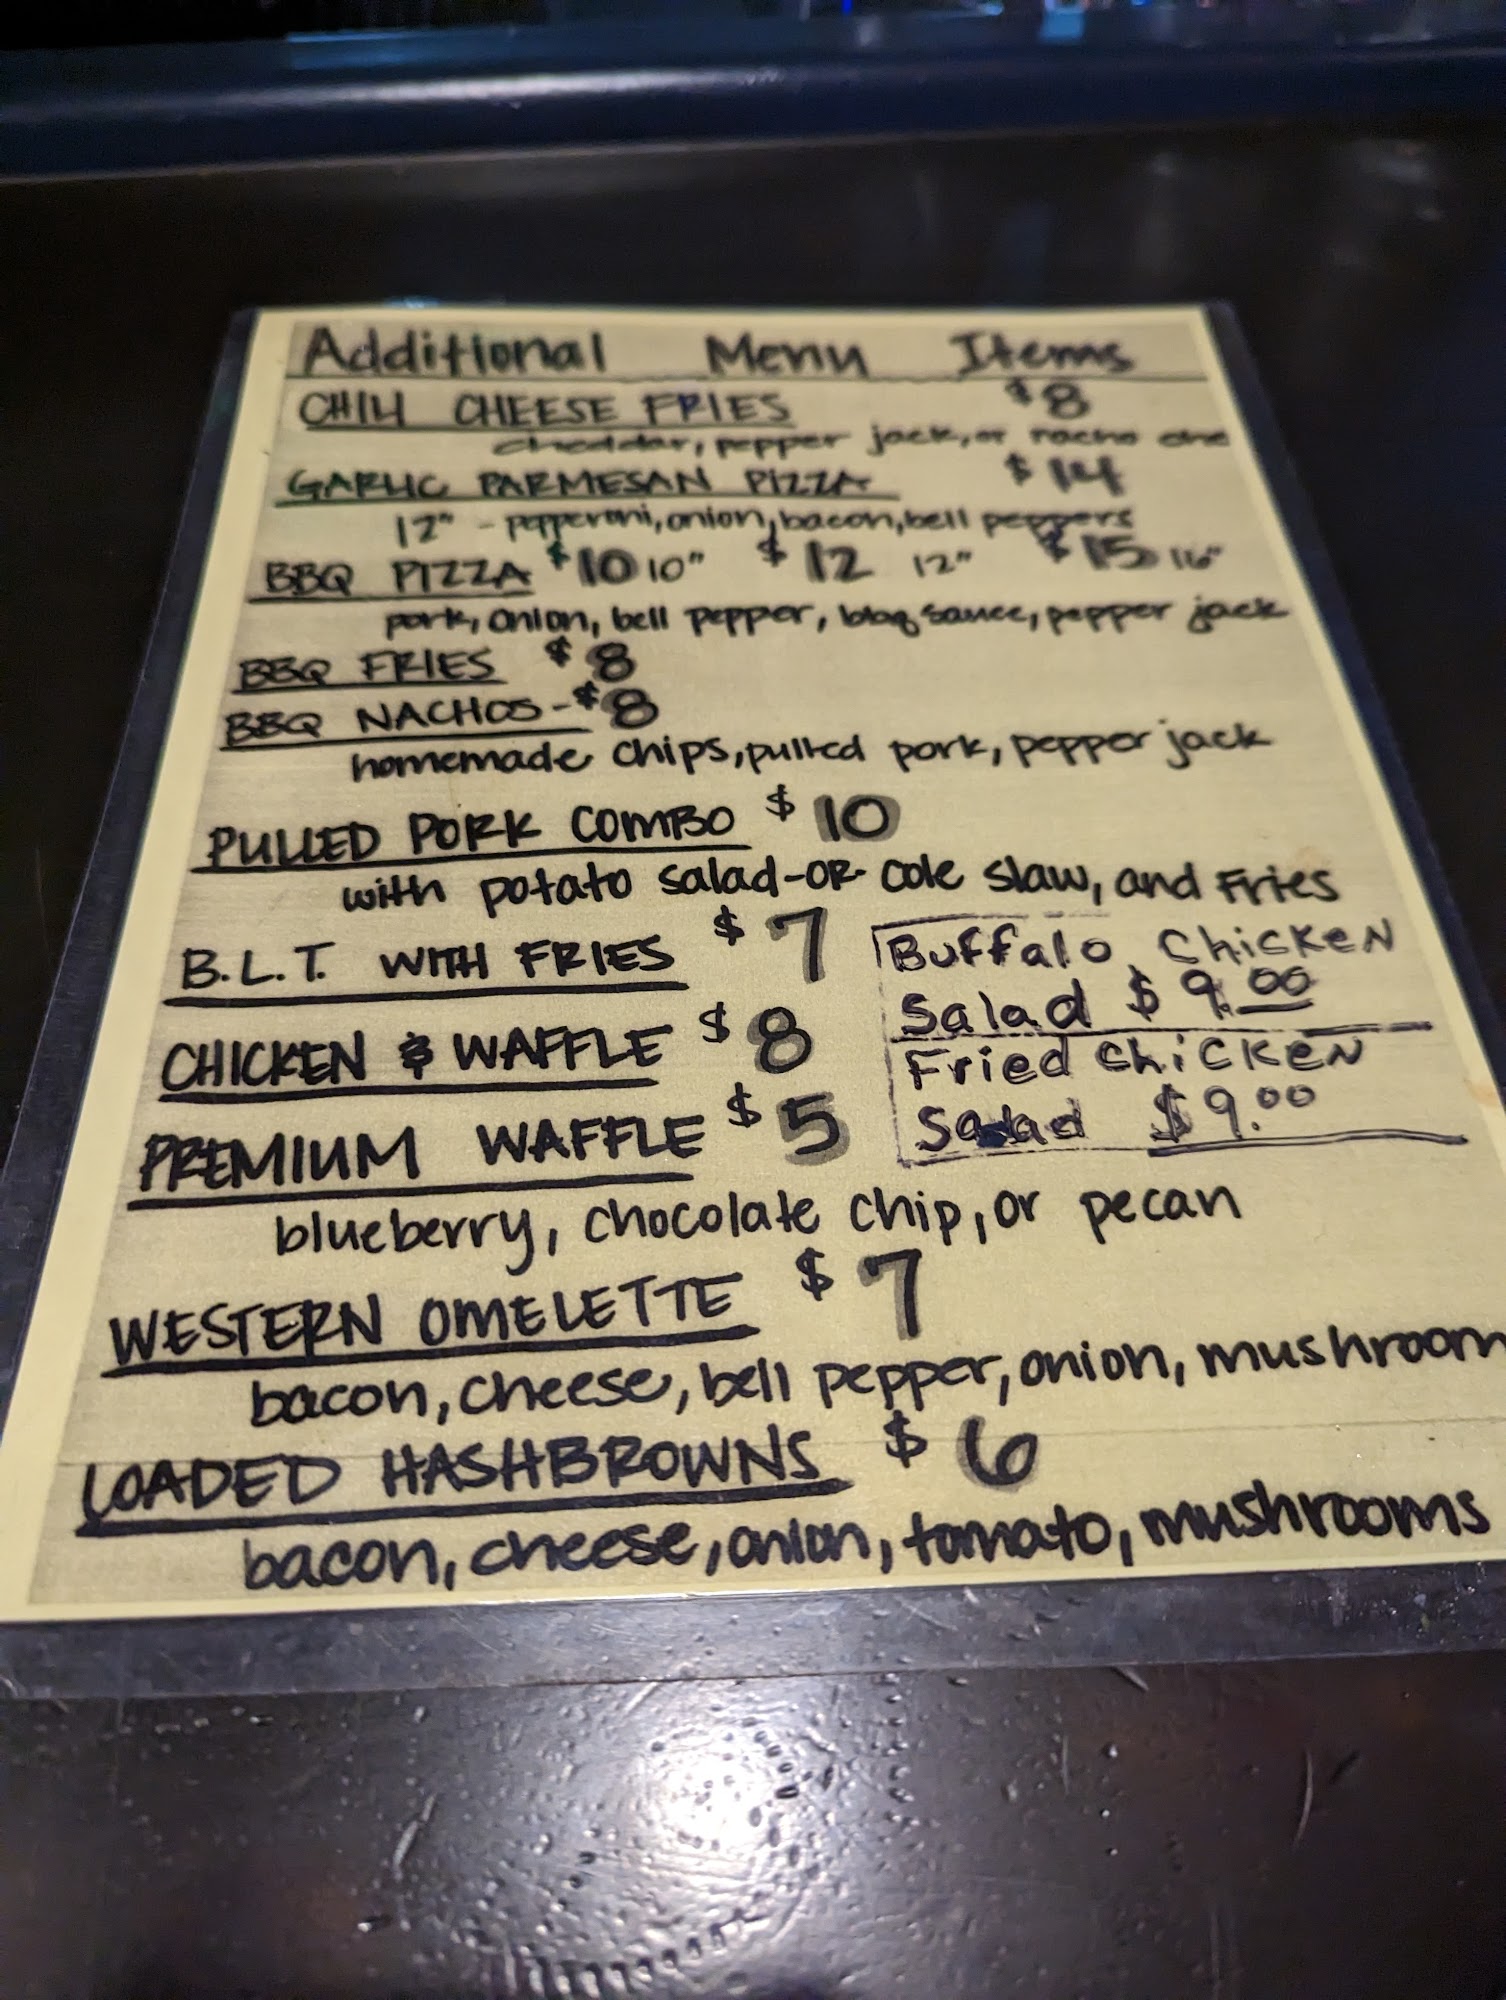 Additional Menu Items
CHILI CHEESE FRIES $8
cheddar, pepper jack, or nacho chz
GARLIC PARMESAN PIZZA $14
12" - pepperoni, onion, bacon, bell peppers
BBQ PIZZA $10 10" $12 12" $15 16"
pork, onion, bell pepper, bbq sauce, pepper jack
BBQ FRIES $8
BBQ NACHOS - $8
homemade chips, pulled pork, pepper jack
PULLED PORK COMBO $10
with potato salad -OR- cole slaw, and Fries
B.L.T. WITH FRIES $7
CHICKEN & WAFFLE $8
PREMIUM WAFFLE $5
blueberry, chocolate chip, or pecan
Buffalo Chicken
Salad $9.00
Fried chicken
Salad $9.00
WESTERN OMELETTE $7
bacon, cheese, bell pepper, onion, mushroom
LOADED HASHBROWNS $6
bacon, cheese, onion, tomato, mushrooms